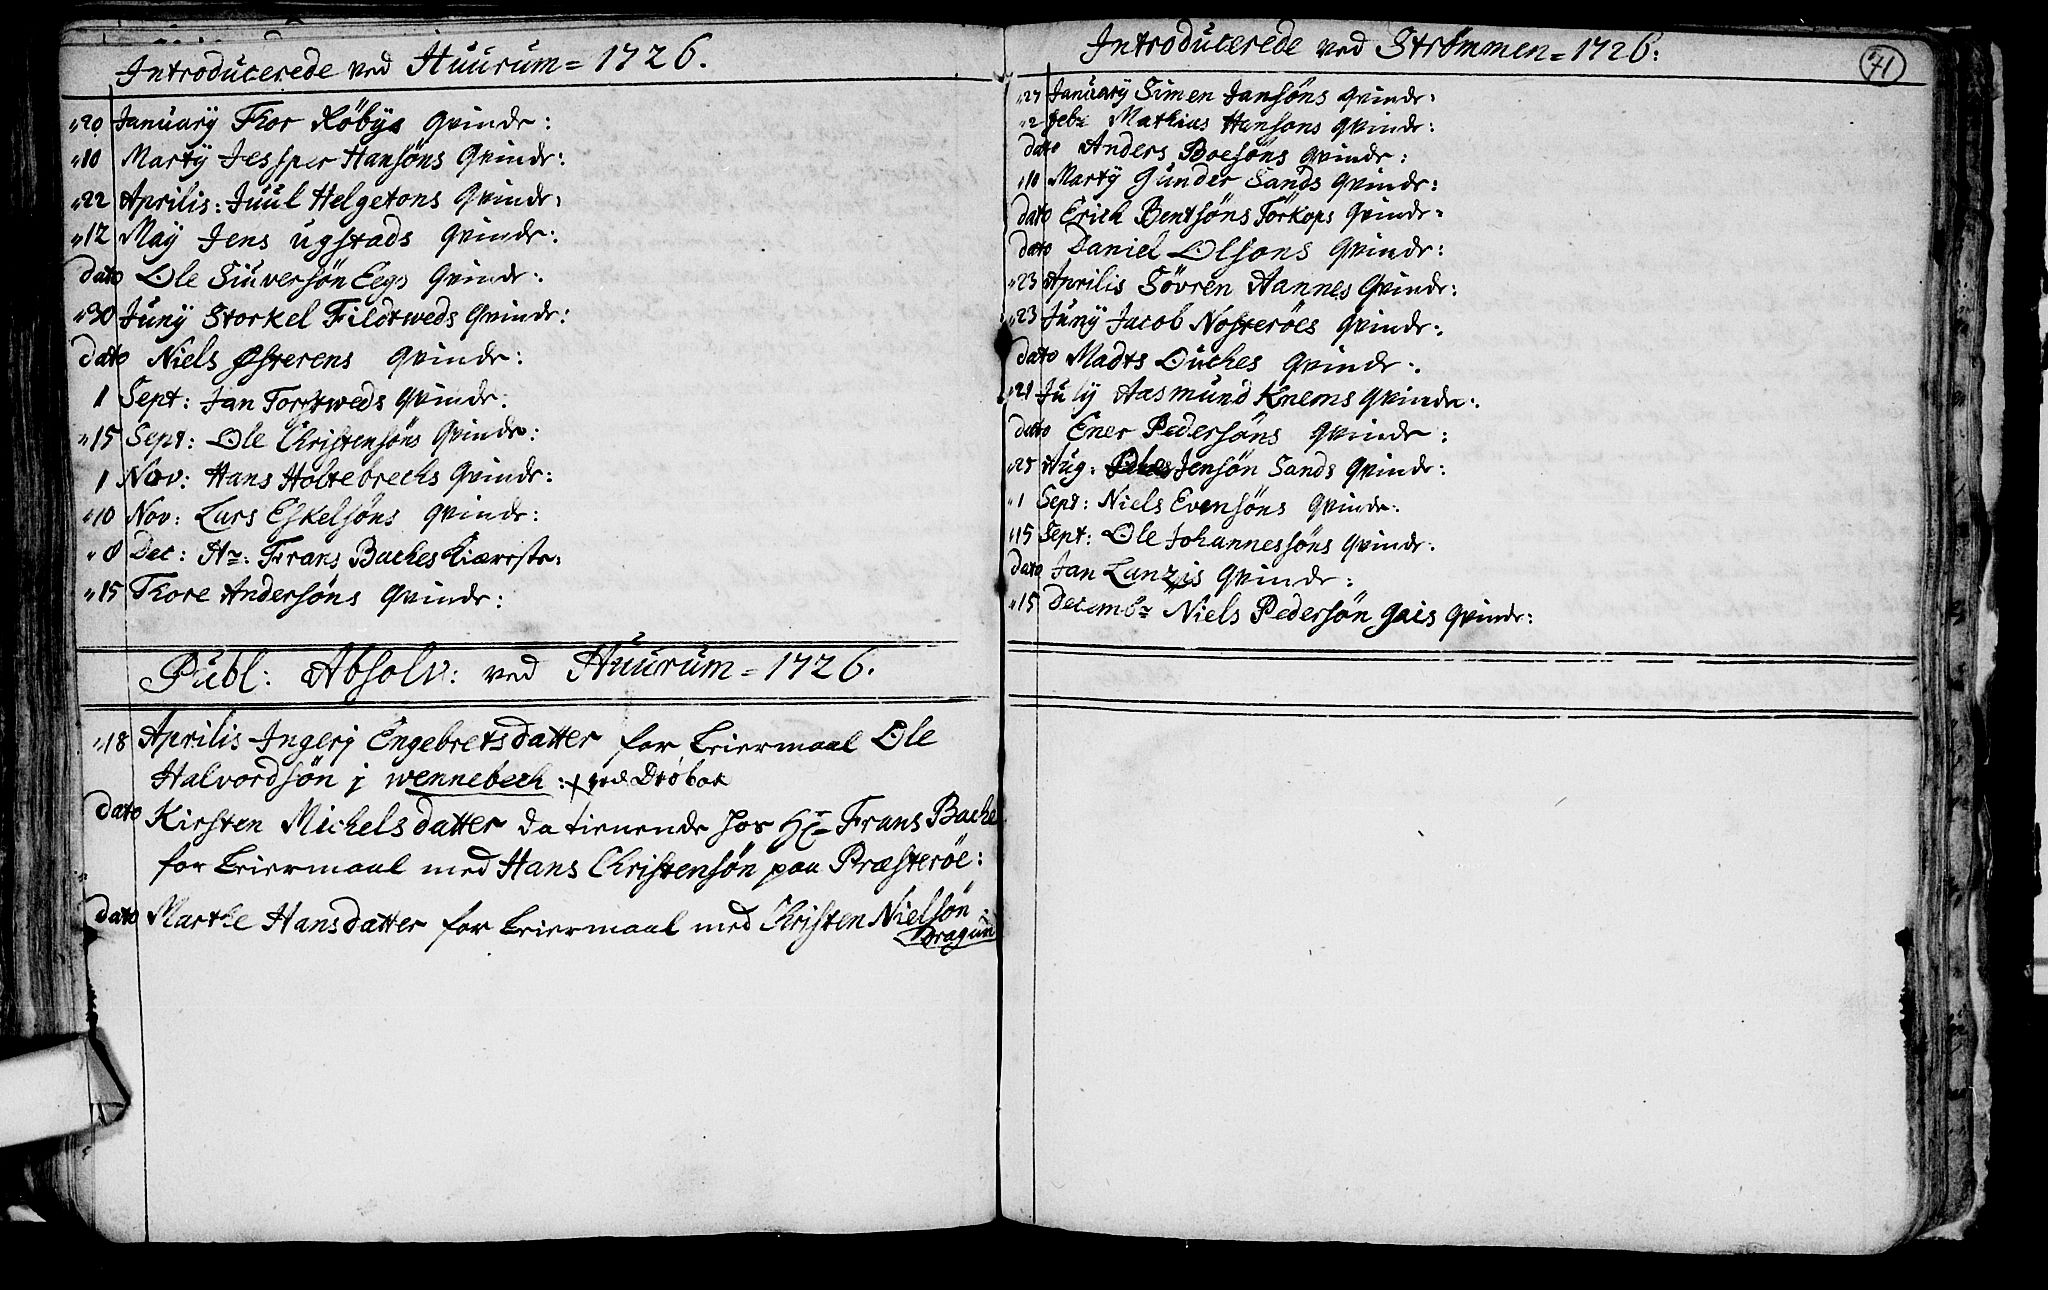 Introducerede ved Huurum = 1726.
20 January Thor Röbys Qvinde:
10 Martÿ Jessper Hansöns Qvinde:
22 Aprilis: Juul Helgetons Qvinde:
12 Maÿ Jens ugstads Qvinde:
dato Ole Siuversön Eegs Qvinde:
30 Junÿ Storkel Fildtweds Qvinde:
dato Niels Østerens Qvinde:
1 Sept: Jan Tortweds Qvinde:
15 Sept: Ole Christensöns Qvinde:
1 Nov: Hans Holtebrechs Qvinde:
10 Nov: Lars Eskelsöns Qvinde:
8 Dec: Hr: Frans Baches Kiæreste:
15 Thore Andersöns Qvinde:
Publ: Absolv: ved Huurum = 1726.
18 Aprilis Ingerj Engebretsdatter for Leiermaal Ole
Halvordsön j wennebech: ved Dröbak
dato Kirsten Michelsdatter da tienende hos Hr Frans Bache
for Leiermaal med Hans Christensön paa Præsteröe:
dato Marthe Hansdatter for Leiermaal med Christen Nielsön
Dragun
71
Introducerede ved Strømmen = 1726:
27 January Simen Jansöns Qvinde:
2 febr Mathias Hansons Qvinde:
dato Anders Boesöns Qvinde:
10 Martÿ Gunder Sands Qvinde:
dato Erich Bentsöns Törkops Qvinde:
dato Daniel Olsons Qvinde:
23 Aprilis Sövren Hannes Qvinde:
23 Junÿ Jacob Nosteröes Qvinde:
dato Madts Ouches Qvinde:
21 Julÿ Aasmund Knems Qvinde:
dato Ener Pedersöns Qvinde:
25 Aug: Jensön Sands Qvinde:
1 Sept: Niels Evensöns Qvinde:
15 Sept: Ole Johannessöns Qvinde:
dato Jan Lanzis Qvinde:
15 Decembr Niels Pedersön Gais Qvinde: